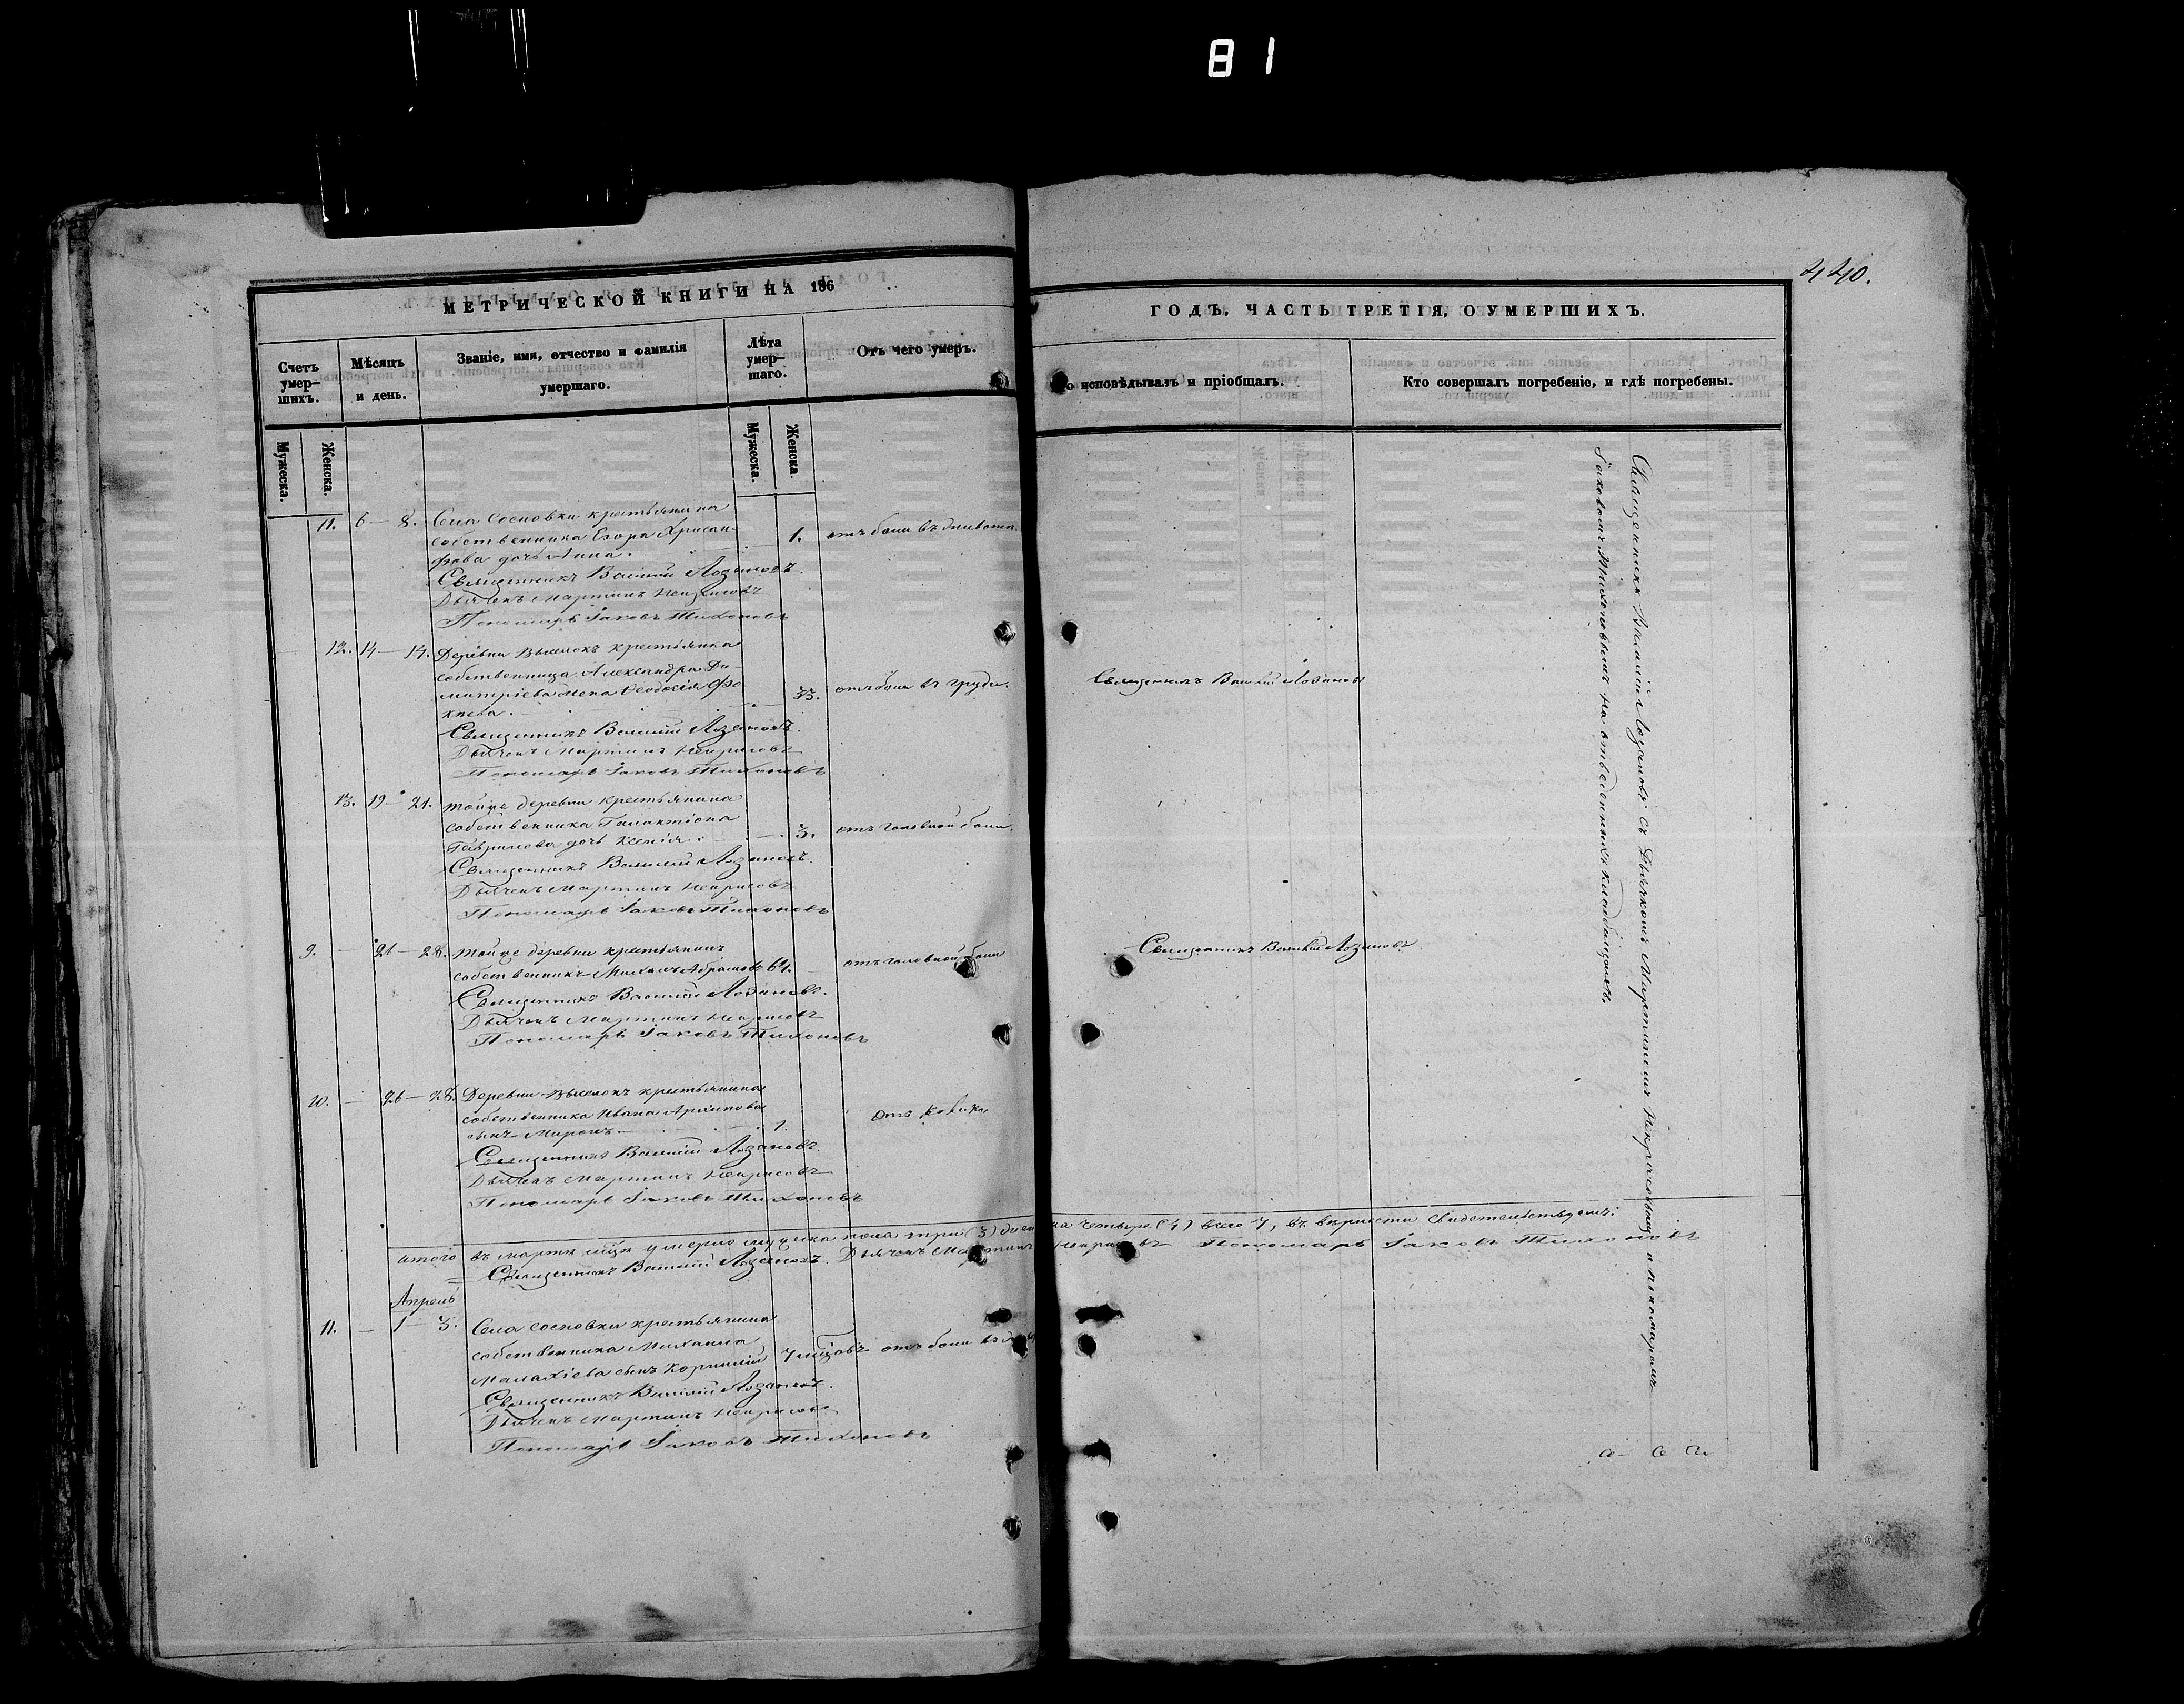 81
440.
МЕТРИЧЕСКОЙ КНИГИ НА 186
ГОДЪ, ЧАСТЬ ТРЕТІЯ, О УМЕРШИХЪ.
Счетъ умер-шихъ.
Мѣсяцъ и день.
Званіе, имя, отчество и фамилія умершаго.
Лѣта умер-шаго.
Отъ чего умеръ.
исповѣдывалъ и пріобщалъ.
Кто совершалъ погребеніе, и гдѣ погребены.
Мужеска.
Женска.
Мужеска.
Женска.
11. 6 — 8. Села Сосновки крестьянина
собственника Егора Хрисан-
фова дочь Анна. 1. отъ боли въ животѣ.
Священникъ Василій Лозановъ.
Дьячекъ Мартинъ Некрасовъ
Пономарь Іаковъ Тихоновъ
12. 14 — 14. Деревни Выселокъ крестьянка
собственница Александра Ди-
митріева жена Ѳеодосія Фо- 33. отъ боли въ груди. Священникъ Василій Лозановъ
киева.
Священникъ Василій Лозановъ.
Дьячекъ Мартинъ Некрасовъ
Пономарь Іаковъ Тихоновъ
13. 19 — 21. тойже деревни крестьянина
собственника Галактіона
Гаврилова дочь Ксенія. 3. отъ головной боли.
Священникъ Василій Лозановъ.
Дьячекъ Мартинъ Некрасовъ
Пономарь Іаковъ Тихоновъ
9. — 21 — 28. тойже деревни крестьянинъ
собственникъ Михаилъ Абрамовъ 64. отъ головной боли Священникъ Василій Лозановъ
Священникъ Василій Лозановъ.
Дьячекъ Мартинъ Некрасовъ
Пономарь Іаковъ Тихоновъ
10. — 26 — 28. Деревни Выселокъ крестьянина
собственника Ивана Архипова
сынъ Миронъ. 1. Отъ
Священникъ Василій Лозановъ.
Дьячекъ Мартинъ Некрасовъ
Пономарь Іаковъ Тихоновъ
итого въ мартѣ м͠цѣ умерло мужеска пола три (3) женска четыре (4) всего 7, въ вѣрности свидетельствуемъ:
Священникъ Василій Лозановъ. Дьячекъ Мартинъ Некрасовъ Пономарь Іаковъ Тихоновъ
Апрель
11. — 1 — 3. Села Сосновки крестьянина
собственника Михаила
Малахіева сынъ Корнилій 7 отъ боли въ
Священникъ Василій Лозановъ.
Дьячекъ Мартинъ Некрасовъ
Пономарь Іаковъ Тихоновъ
Священникъ Василій Лозановъ съ Дьячкомъ Мартиномъ Некрасовымъ и пономаремъ
Іаковомъ Тихоновымъ на отведенныхъ кладбищахъ.